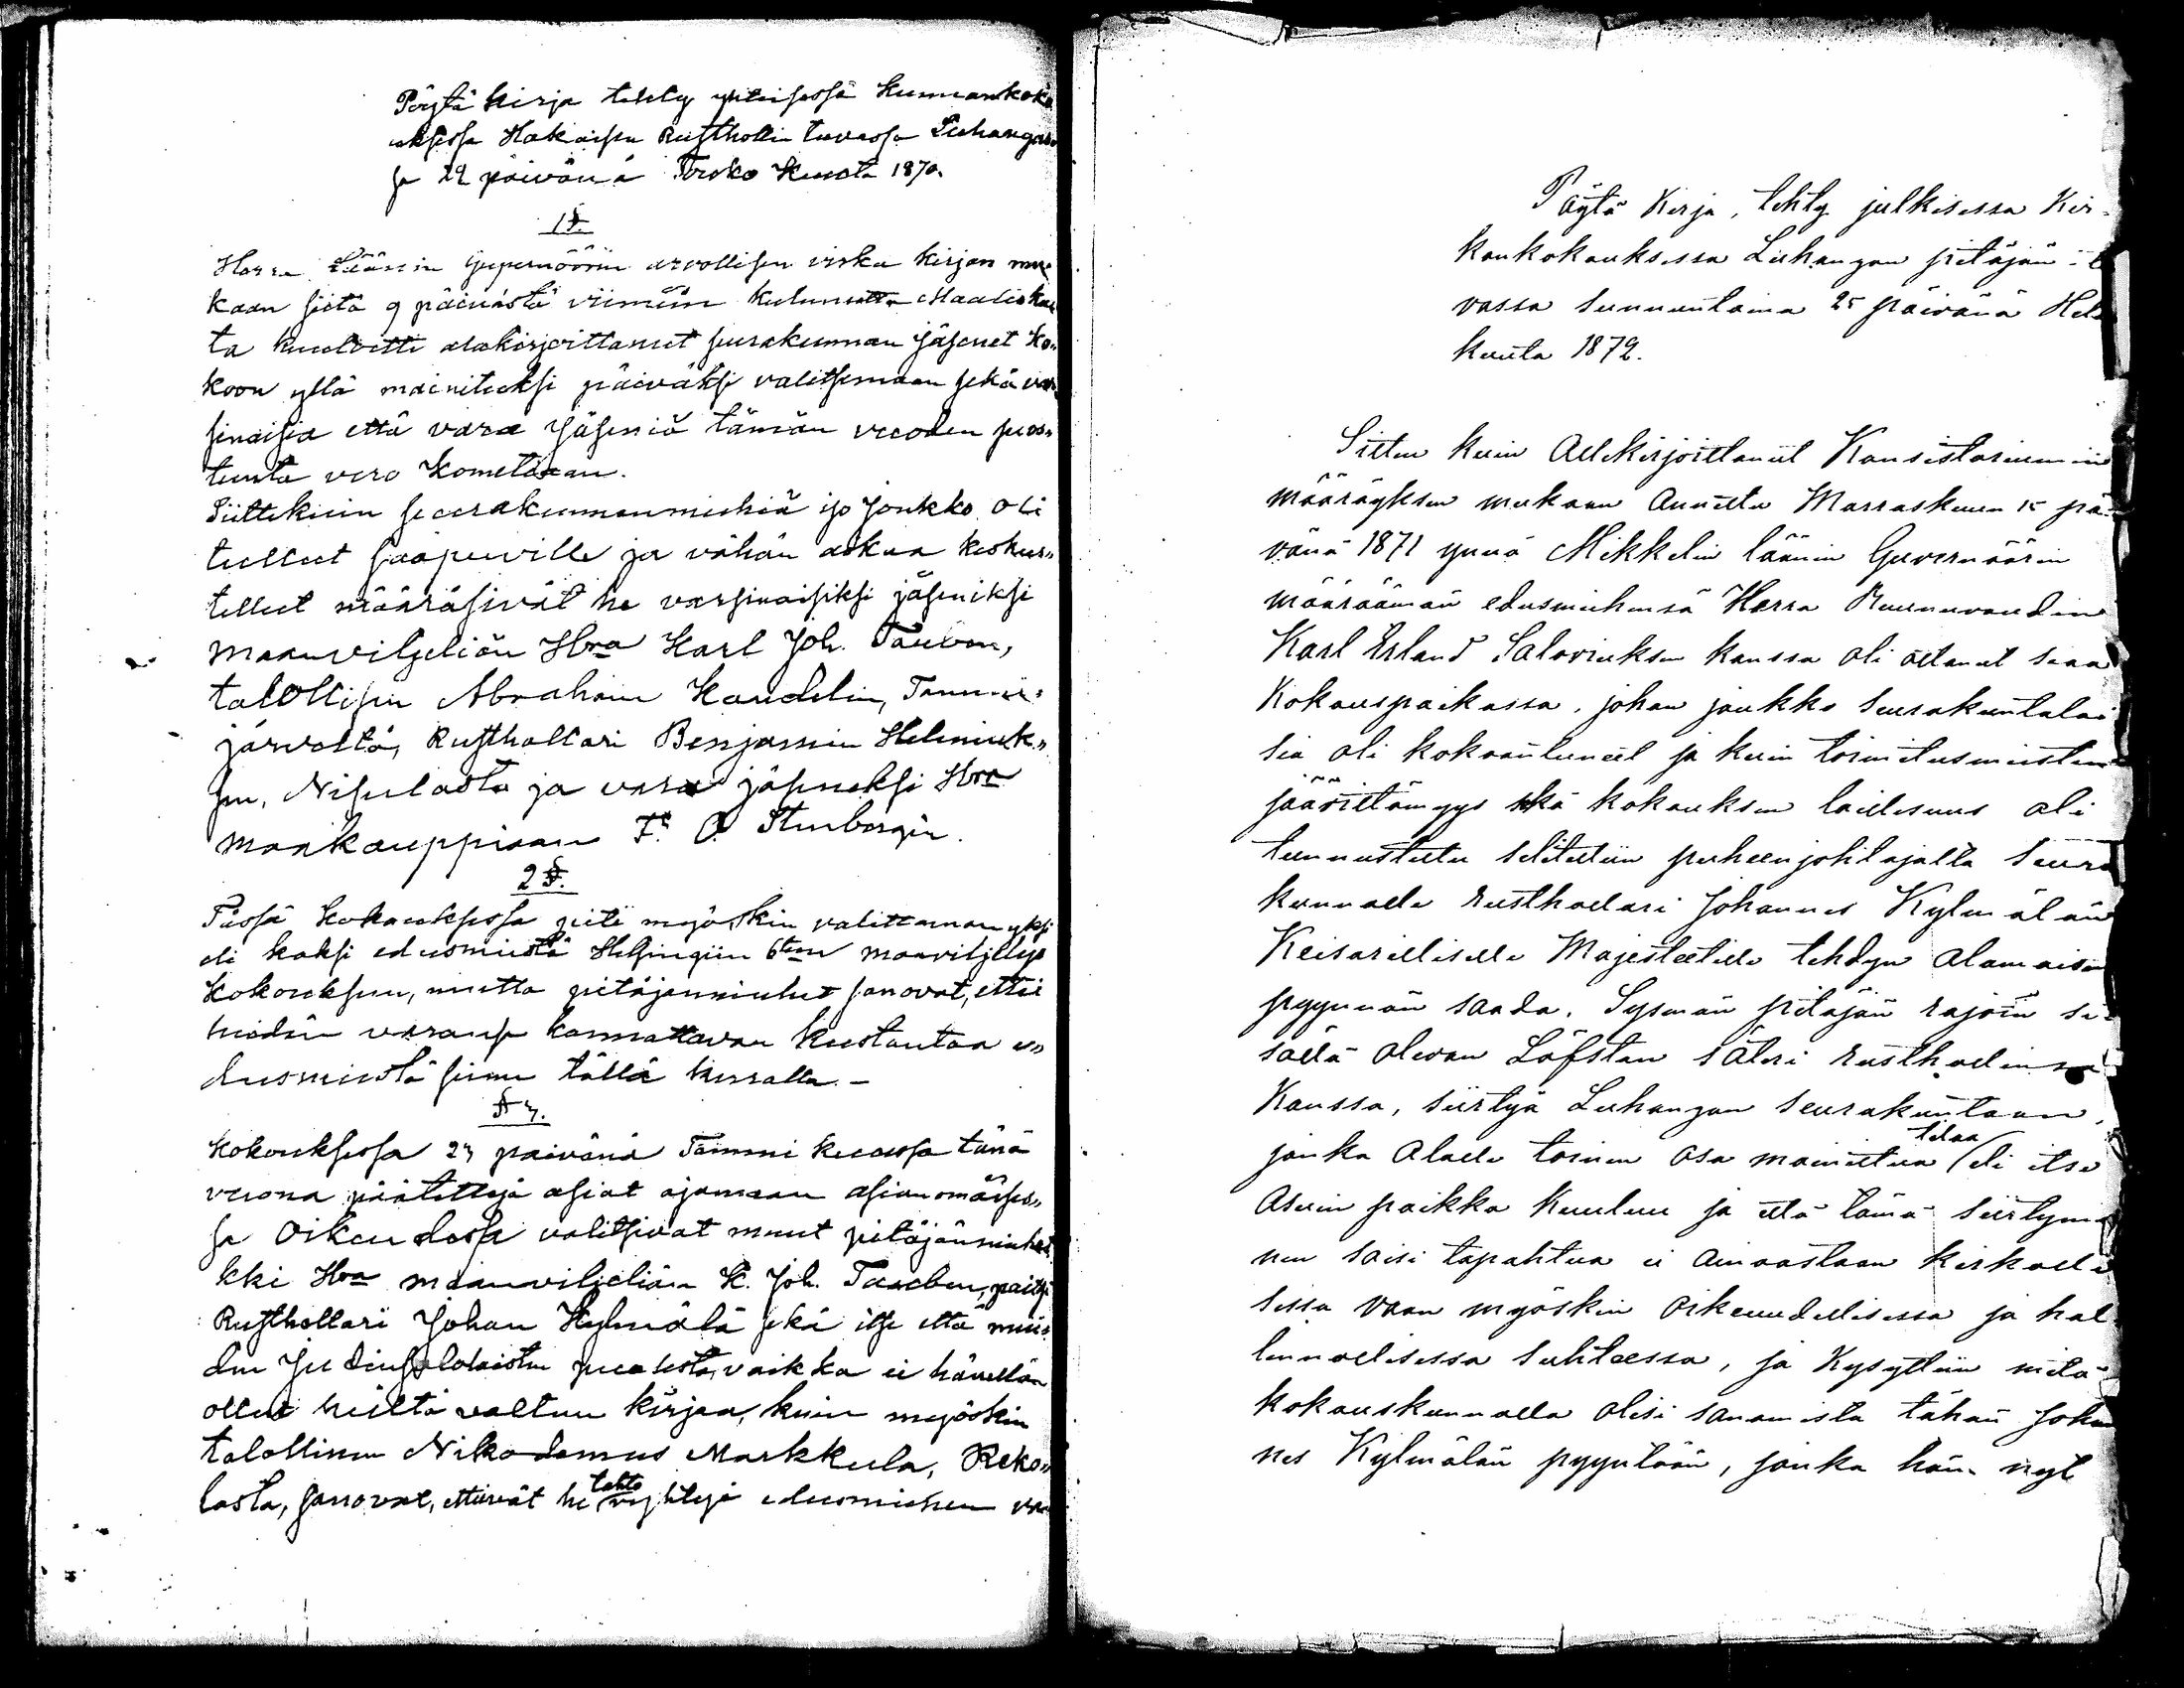 Pöytä kirja tehty yhteisessä Kunnankoko
uksessa Hakaisen Rustholli tuvassa Luhangas
sa 22 päivänä Touko Kuuta 1870.
1 §.
Herra Läänin Guvernöörin arvollisen virka kirjan mu
kaan siitä 9 päivästä viimein kulunutta Maalisku
ta kuuluttu alakirjoittanut seurakunnan jäsenet ko„
koon yllä mainituksi päiväksi valitsemaan sekä var
sinaisia että vara Jäseniä tämän vuoden suos„
tunta vero Kometiaan.
Siittekuin seurakunnanmiehiä iso Joukko oli
tulleet saapuville ja vähän aikaa keskus„
telleet määräsivät he varsinaisiksi jäseniksi
maanviljeliän Hra Karl Joh. Tauben,
talollisen Abraham Kaudelin, Tammi„
järveltä, Rusthollari Benjamin Heleniuk„
sen, Nisulasta ja vara jäseneksi Hra
maakauppiaan F. O. Stenbergin.
2 §.
Tässä Kokouksessa piti myöskin valittaman yksi
eli kaksi edusmiestä Helsingiin 6ten maaviljelys
Kokoukseen, mutta pitäjänmiehet sanovat, ettei
heidän varansa kannattavan kustantaa e„
dusmiestä sinne tällä kerralla. —
§ 3.
Kokouksessa 23 päivänä Tammi kuussa tänä
vuona päätettyjä asiat ajamaan asianomaises„
sa Oikeudessa valitsivat muut pitäjänmiehet
kki Hra maanviljeliän K. Joh. Tauben, paitsi
Rusthollari Johan Kylmälä sekä itse että mui„
den Judinsalolaisten puolesta, vaikka ei hänellän
ollut heiltä valtuu kirjaa, kuin myöskin
talollinen Nikodemus Markkula, Reko„
lasta, sanovat, etteivät he tahto yhtyä edusmiehen va

Pöytä Kirja, tehty julkisessa Kir„
konkokouksessa Luhangan pitäjän t
vassa sunnuntaina 25 päivänä Helm
kuuta 1872.
Sitten kuin Allekirjoittanut Konsistoriumin
määräyksen mukaan annettu Marraskuun 15 päi
vänä 1871 ynnä Mikkelin läänin Guvernöörin
määräämän edusmiehensä Herra Ruununvoudin
Karl Erland Saloviuksen kanssa oli ottanut siaa
Kokouspaikassa, johan joukko seurakuntalai
sia oli kokoontuneet ja kuin toimitusmiesten
jäävittömyys sekä kokouksen laillisuus oli
tunnustettu selitettiin puheenjohtajalta seura
kunnalle rusthollari Johannes Kylmälän
Keisarilliselle Majesteetille tehdyn alamaisen
pyynnön saada, Sysmän pitäjän rajoin si
sällä olevan Löfstan säteri rusthollinsa
Kanssa, siirtyä Luhangan seurakuntaan,
jonka alalle toinen osa mainittua tilaa eli itse
Asuin paikka kuuluu ja että tämä siirtymi
nen saisi tapahtua ei ainoastaan kirkolli
sessa vaan myöskin oikeudellisessa ja hal
linnollisessa suhteessa, ja Kysyttiin mitä
kokouskunnalla olisi sanomista tähän Johan
nes Kylmälän pyyntöön, jonka hän nyt